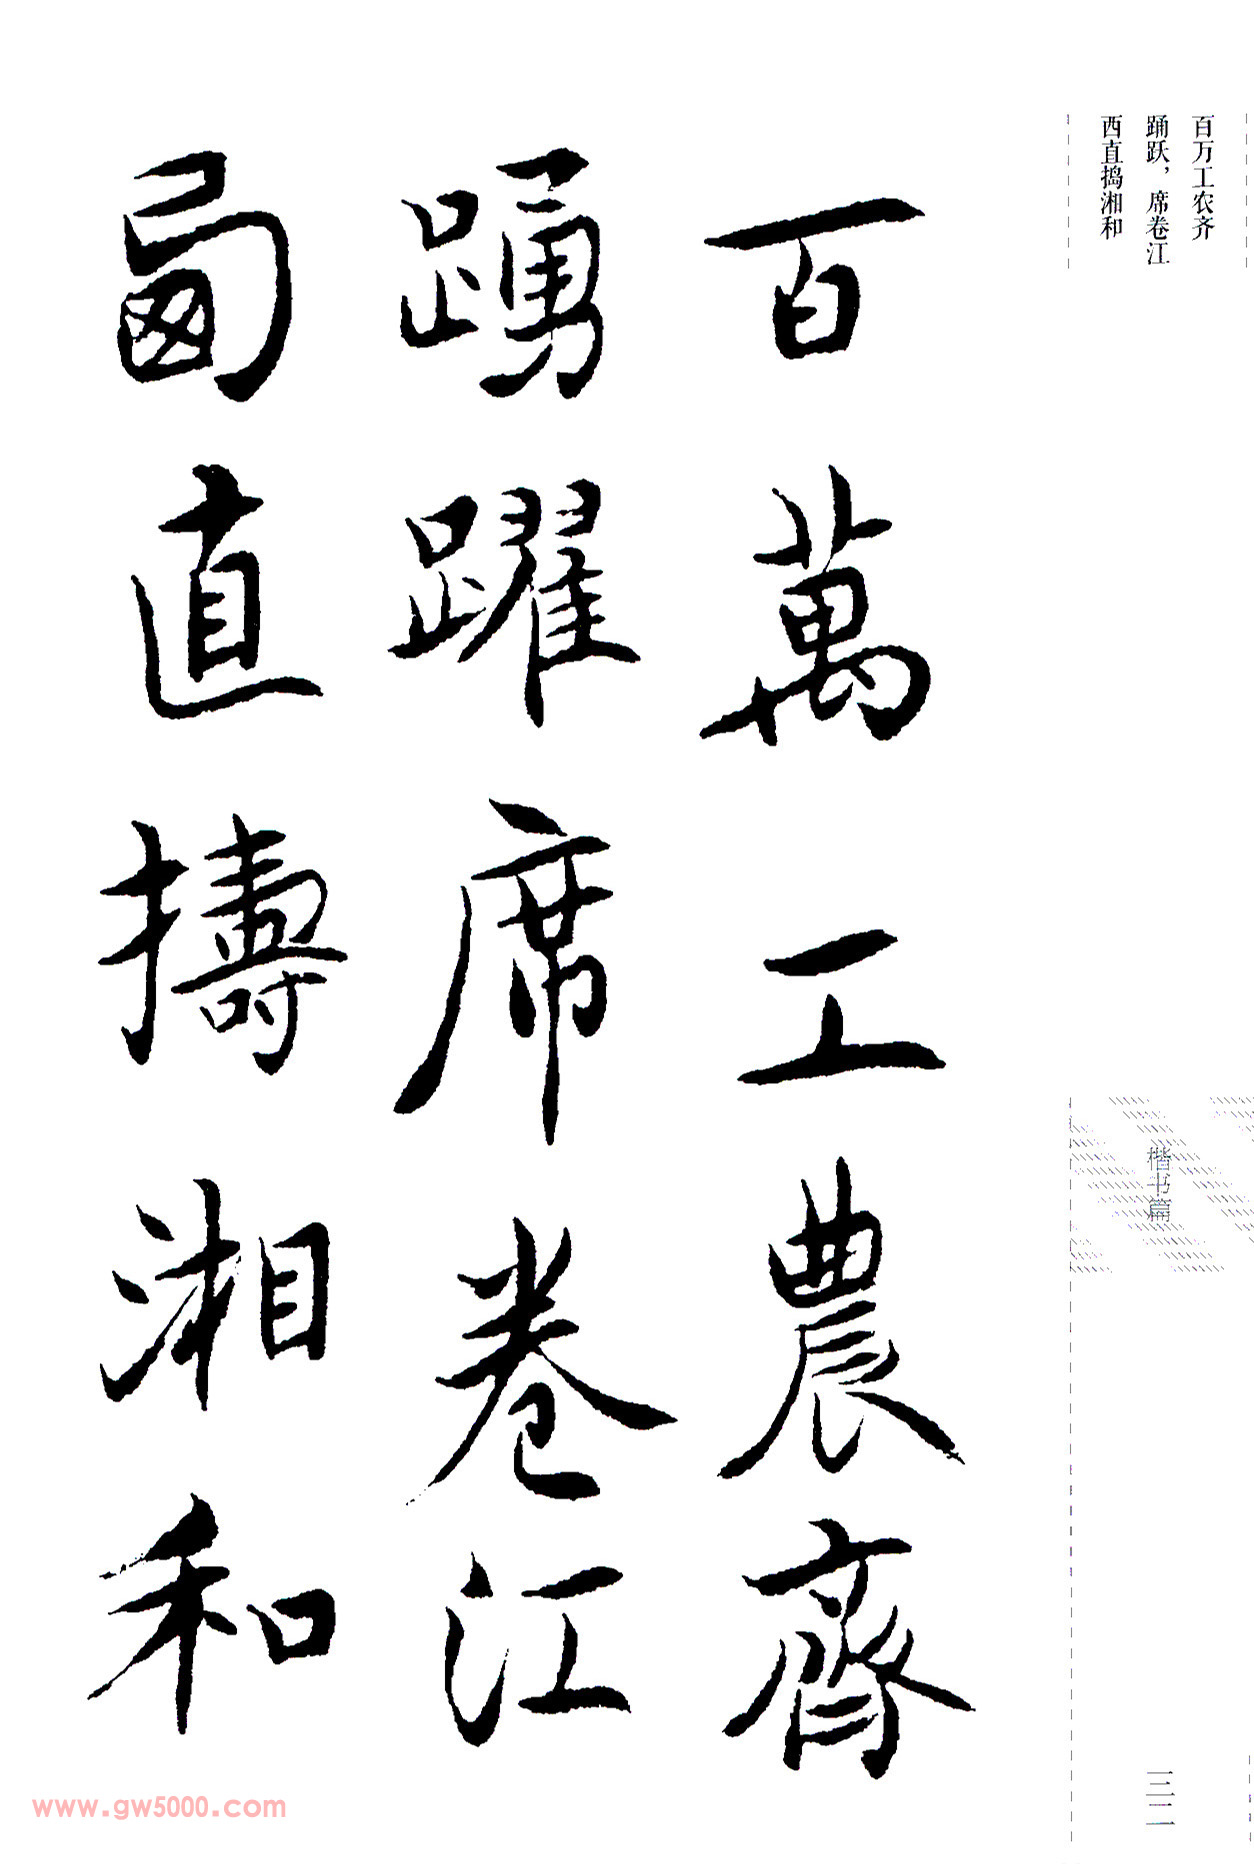 百万工农齐
踊跃，席卷江
西直捣湘和
楷书篇
三二
百萬工農齊
踴躍席卷江
卥直擣湘和
www.gw5000.com